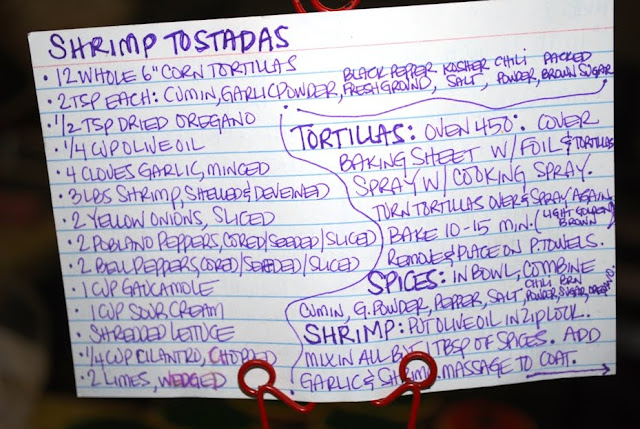 SHRIMP TOSTADAS
• 12 WHOLE 6" CORN TORTILLAS
• 2 TSP EACH: CUMIN, GARLIC POWDER, BLACK PEPPER FRESH GROUND, KOSHER SALT, CHILI POWDER, PACKED BROWN SUGAR
• 1/2 TSP DRIED OREGANO
• 1/4 CUP OLIVE OIL
• 4 CLOVES GARLIC, MINCED
• 3 LBS SHRIMP, SHELLED & DEVEINED
• 2 YELLOW ONIONS, SLICED
• 2 POBLANO PEPPERS, CORED/SEEDED/SLICED
• 2 BELL PEPPERS, CORED/SEEDED/SLICED
• 1 CUP GAUCAMOLE
• 1 CUP SOUR CREAM
• SHREDDED LETTUCE
• 1/4 CUP CILANTRO, CHOPPED
• 2 LIMES, WEDGED
TORTILLAS: OVEN 450°. COVER
BAKING SHEET W/ FOIL & TORTILLAS
SPRAY W/ COOKING SPRAY.
TURN TORTILLAS OVER & SPRAY AGAIN.
BAKE 10-15 MIN. (LIGHT GOLDEN BROWN)
REMOVE & PLACE ON P.TOWELS.
SPICES: IN BOWL, COMBINE
CUMIN, G. POWDER, PEPPER, SALT, CHILI POWDER, BRN SUGAR,
SHRIMP: PUT OLIVE OIL IN ZIPLOCK.
MIX IN ALL BUT 1 TBSP OF SPICES. ADD
GARLIC & SHRIMP. MASSAGE TO COAT.